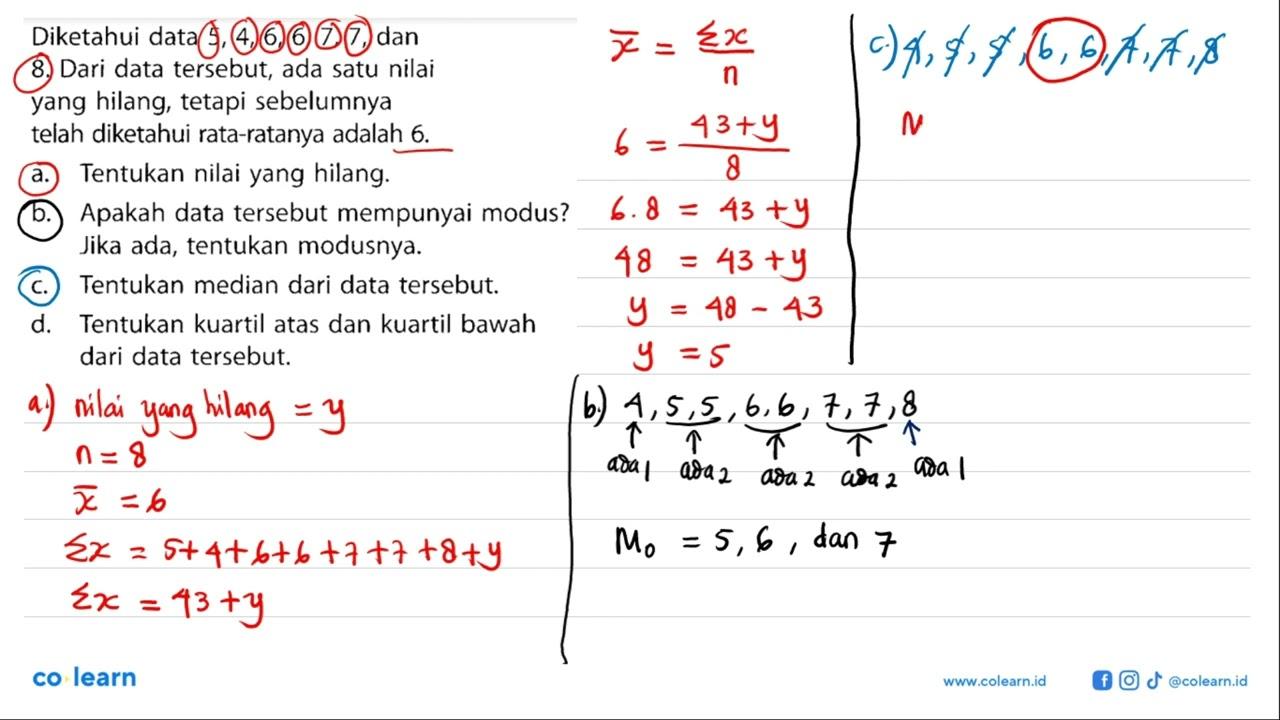 Diketahui data 5, 4, 6, 6 7 7, dan
8. Dari data tersebut, ada satu nilai
yang hilang, tetapi sebelumnya
telah diketahui rata-ratanya adalah 6.
a. Tentukan nilai yang hilang.
b. Apakah data tersebut mempunyai modus?
Jika ada, tentukan modusnya.
c. Tentukan median dari data tersebut.
d. Tentukan kuartil atas dan kuartil bawah
dari data tersebut.
a.) nilai yang hilang = y
n = 8
x̅ = 6
Σx = 5+4+6+6+7+7+8+y
Σx = 43+y
x̅ = Σx/n
6 = 43+y/8
6.8 = 43+y
48 = 43+y
y = 48 - 43
y = 5
b.) 4, 5, 5, 6, 6, 7, 7, 8
ada 1 ada 2 ada 2 ada 2 ada 1
Mo = 5, 6, dan 7
c.) 4, 5, 5, 6, 6, 7, 7, 8
N
co learn
www.colearn.id
@colearn.id